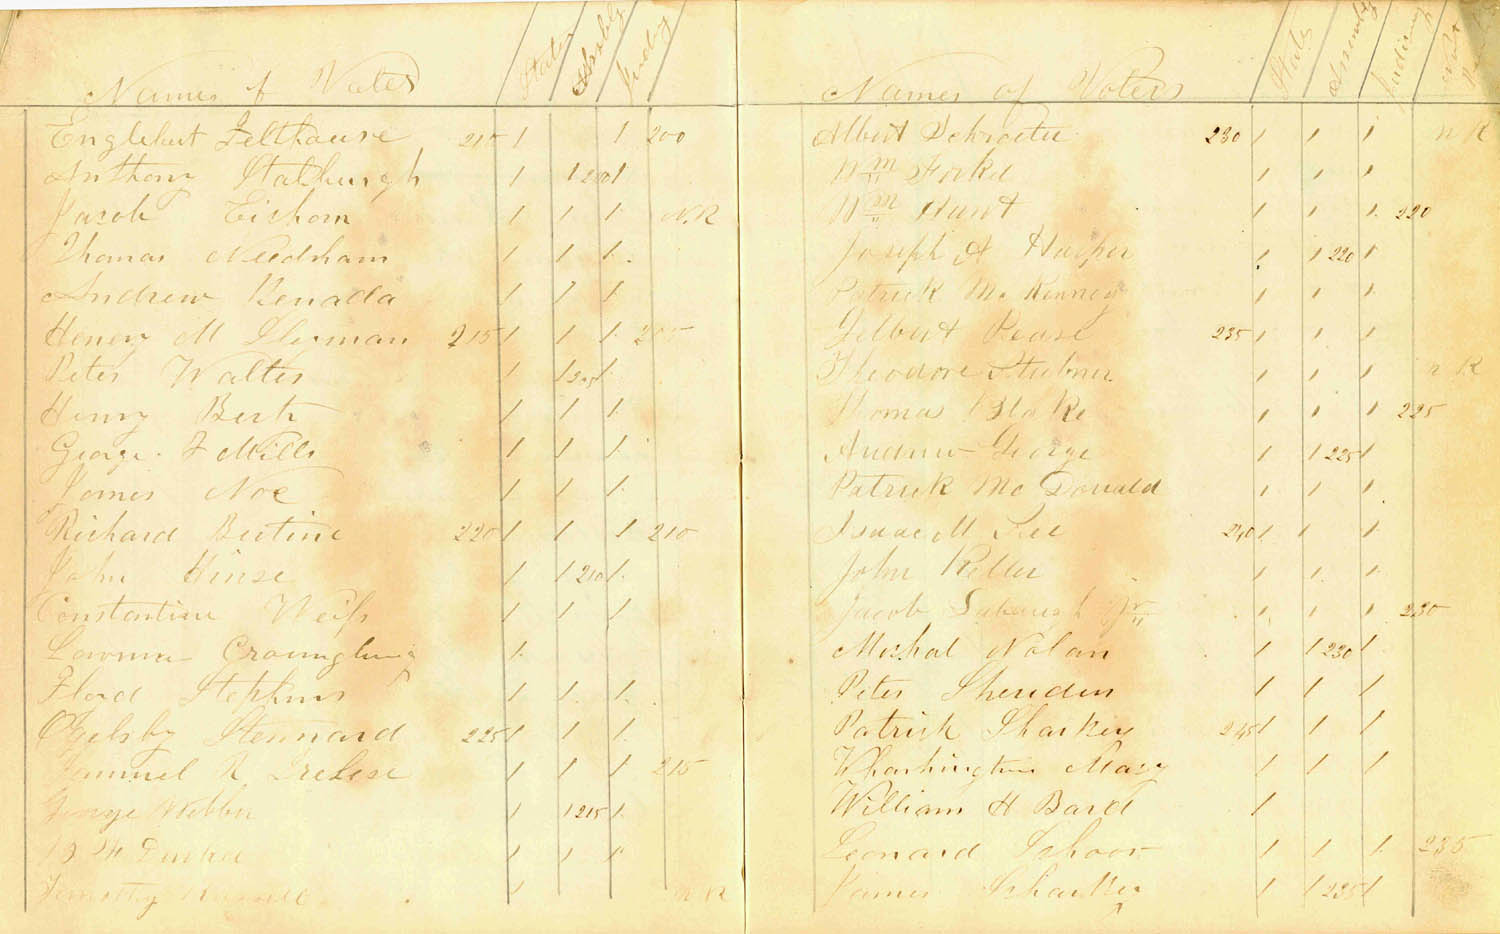 Names of Voters State Assbly Judicy
Englebert Felthause 210 1 1 200
Anthony Stalburgh 1 1 200 1
Jacob Eishorn 1 1 1 N.R
Thomas Needham 1 1 1
Andrew Kenada 1 1 1
Henery M Sherman 215 1 1 1 205
Peter Walter 1 1 205 1
Henry Bertz 1 1 1
George F Mills 1 1 1
James Noe 1 1 1
Richard Bertine 220 1 1 1 210
John Hinse 1 1 210 1
Constantine Weiss 1 1 1
1
Floyd Stephens 1 1 1
Oglsby Stennard 225 1 1 1
Samuel R 1 1 1 215
George Webber 1 1 215 1
1 1 1
Timothy 1 N R
Names of Voters State Assembly Judiciary
Albert Schroeter 230 1 1 1 N R
Wm 1 1 1
Wm Hunt 1 1 1 220
Joseph A Harper 1 1 220 1
Patrick Mc Kenney 1 1 1
Gilbert Pease 235 1 1 1
Theodore Stubner 1 1 1 N R
Thomas Blake 1 1 1 225
Andrew George 1 1 225 1
Patrick Mc Donald 1 1 1
Isaac M Lee 240 1 1 1
John Keller 1 1 1
Jacob Jr 1 1 1 230
Michal Nolan 1 1 230 1
Peter Sheriden 1 1 1
Patrick Sharkey 245 1 1 1
Wharhington Macy 1 1 1
William H Bard 1
Leonard Schoor 1 1 1 235
James Sharkey 1 1 235 1